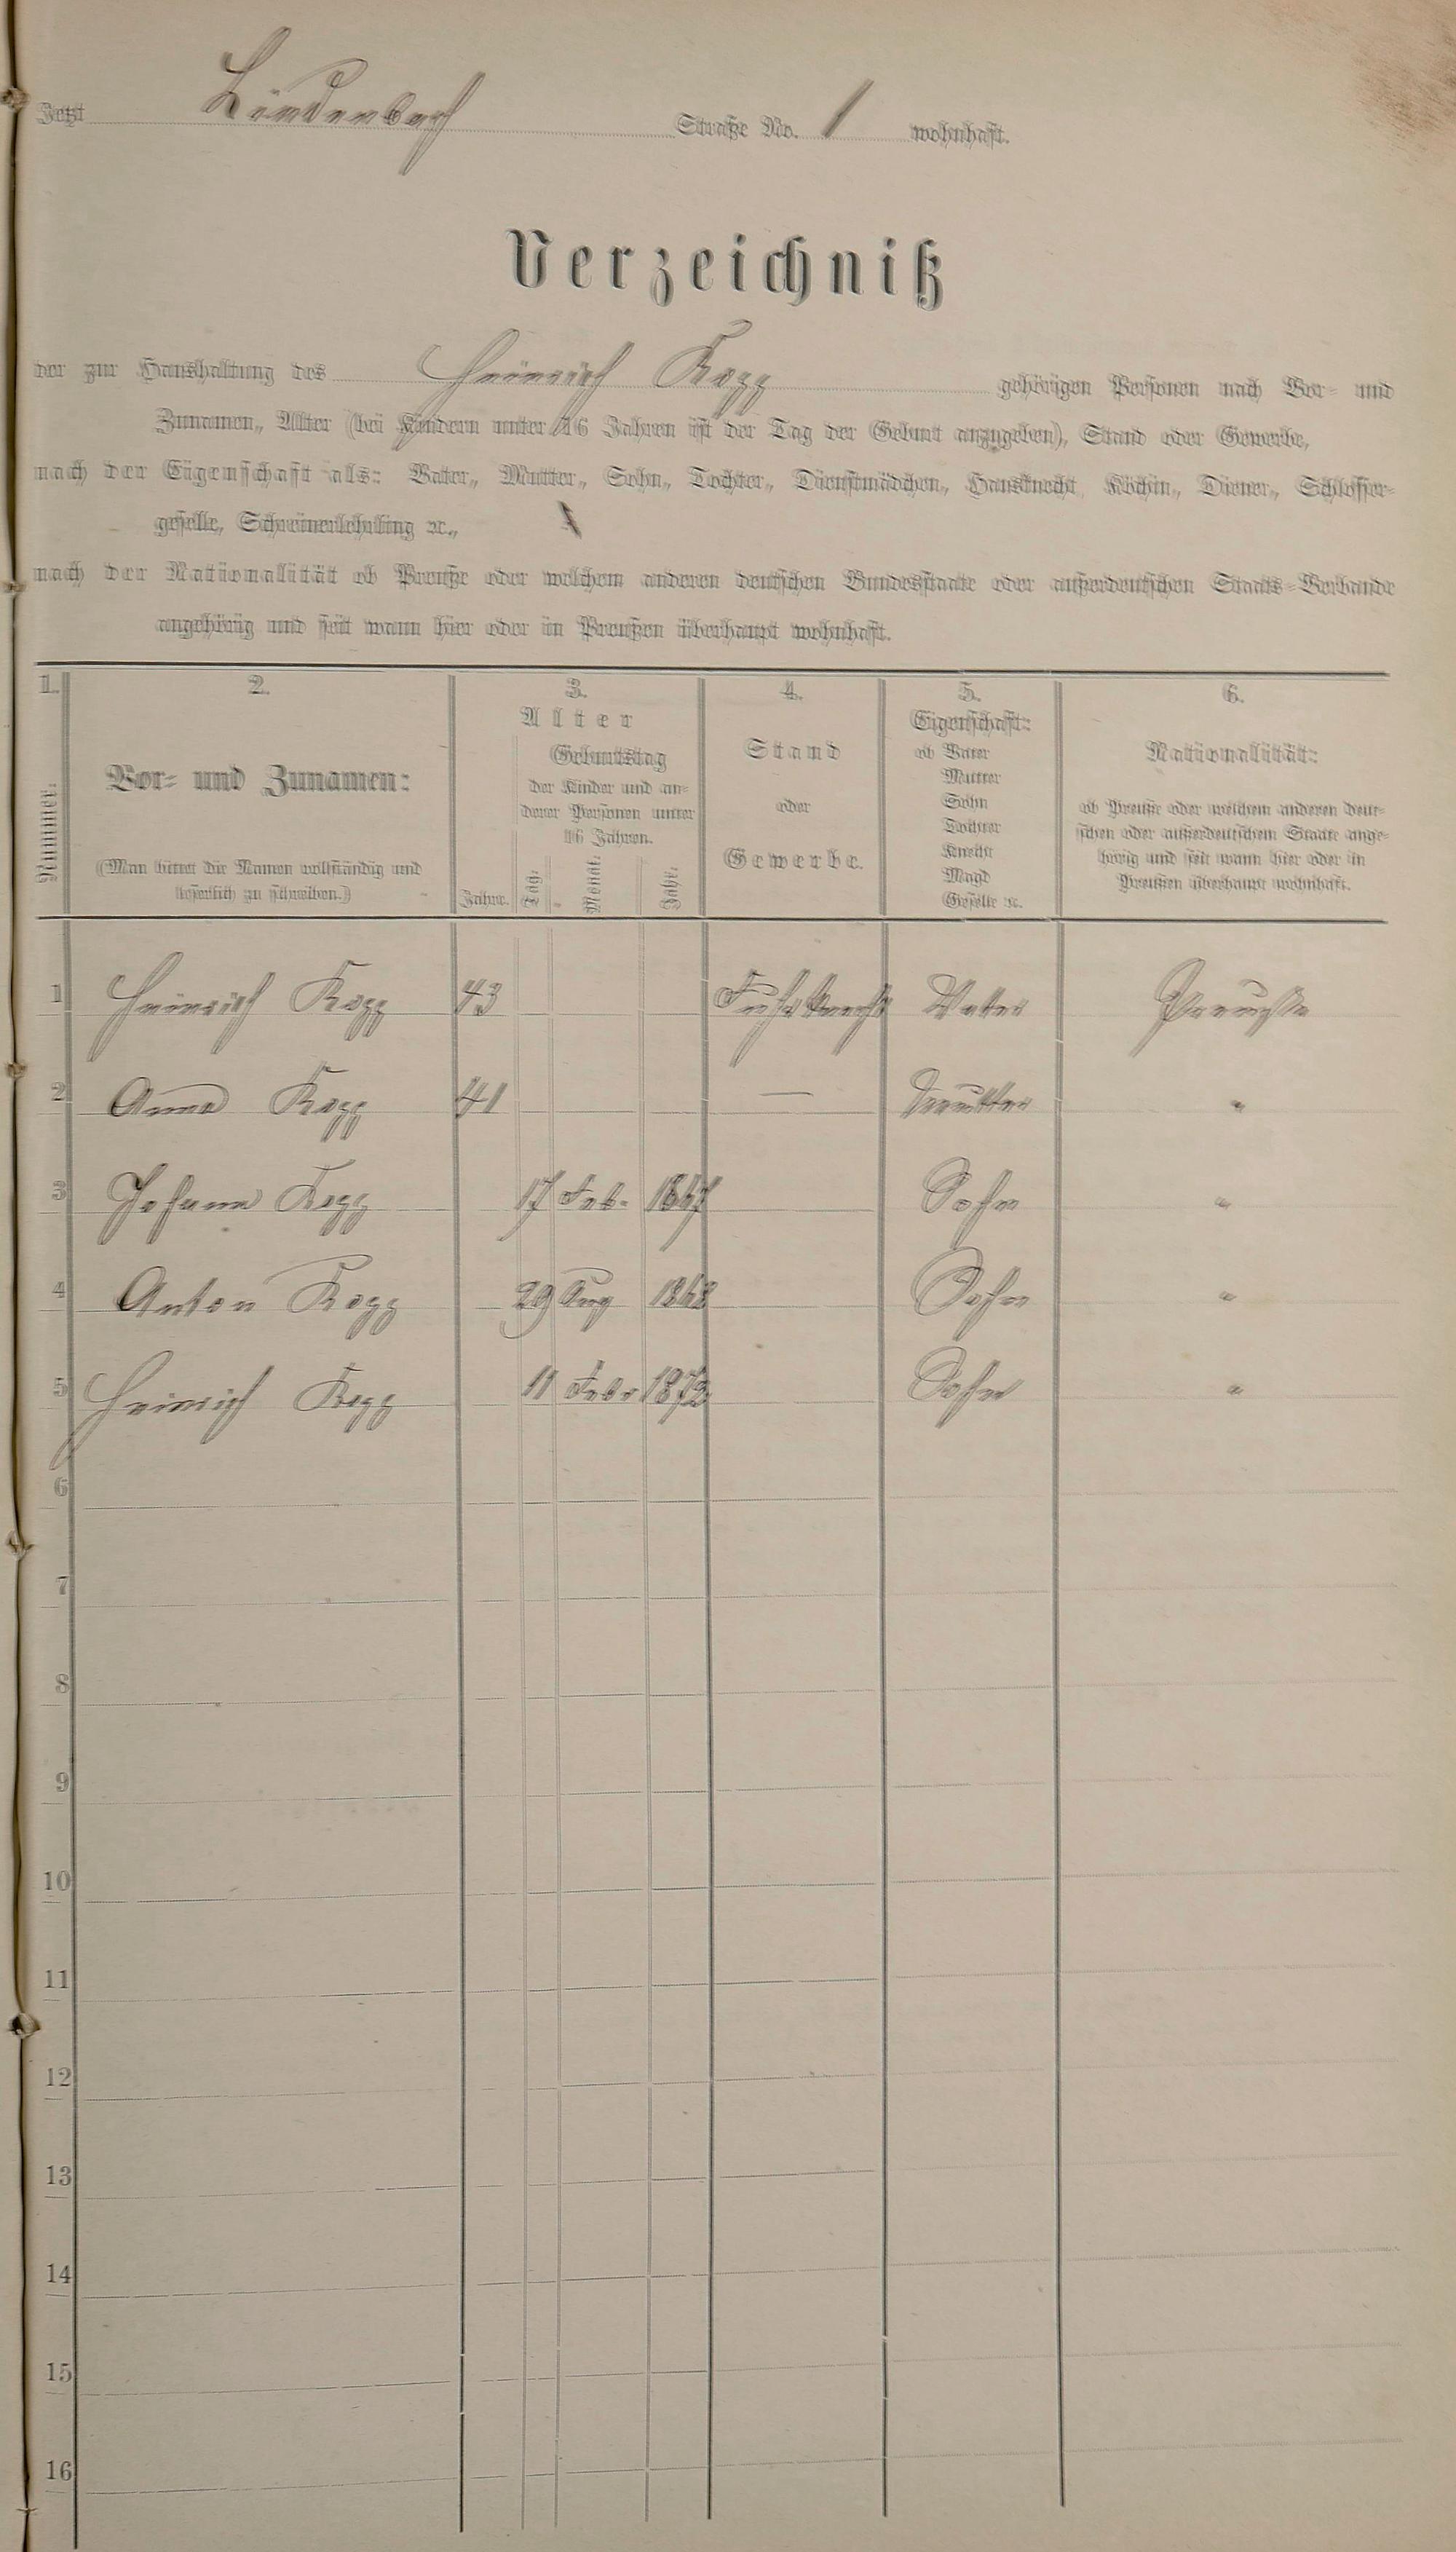 Jetzt Lindenbach Straße No. 1 wohnhaft.
Verzeichniß
der zur Haushaltung des Heinrich Kopp gehörigen Personen nach Vor- und
Zunamen, Alter (bei Kindern unter 16 Jahren ist der Tag der Geburt anzugeben), Stand oder Gewerbe,
nach der Eigenschaft als: Vater, Mutter, Sohn, Tochter, Dienstmädchen, Hausknecht, Köchin, Diener, Schlosser-
geselle, Schreinerlehrling ꝛc.,
nach der Nationalität ob Preuße oder welchem anderen deutschen Bundesstaate oder außerdeutschen Staats-Verbande
angehörig und seit wann hier oder in Preußen überhaupt wohnhaft.
1. 2. 3. 4. 5. 6.
Nummer.
Vor- und Zunamen:
(Man bittet die Namen vollständig und
leserlich zu schreiben.)
Alter
Geburtstag
der Kinder und an-
derer Personen unter
16 Jahren.
Jahre. Tag. Monat. Jahr.
Stand
oder
Gewerbe.
Eigenschaft:
ob Vater
Mutter
Sohn
Tochter
Knecht
Magd
Geselle ꝛc.
Nationalität:
ob Preuße oder welchem anderen deut-
schen oder außerdeutschem Staate ange-
hörig und seit wann hier oder in
Preußen überhaupt wohnhaft.
1 Heinrich Kopp 43 Fuhrknecht Vater Preuße
2 Anna Kopp 41 — Mutter "
3 Johann Kopp 17 Feb. 1867 Sohn "
4 Anton Kopp 29 Aug 1868 Sohn "
5 Heinrich Kopp 11 Febr 1873 Sohn "
6
7
8
9
10
11
12
13
14
15
16